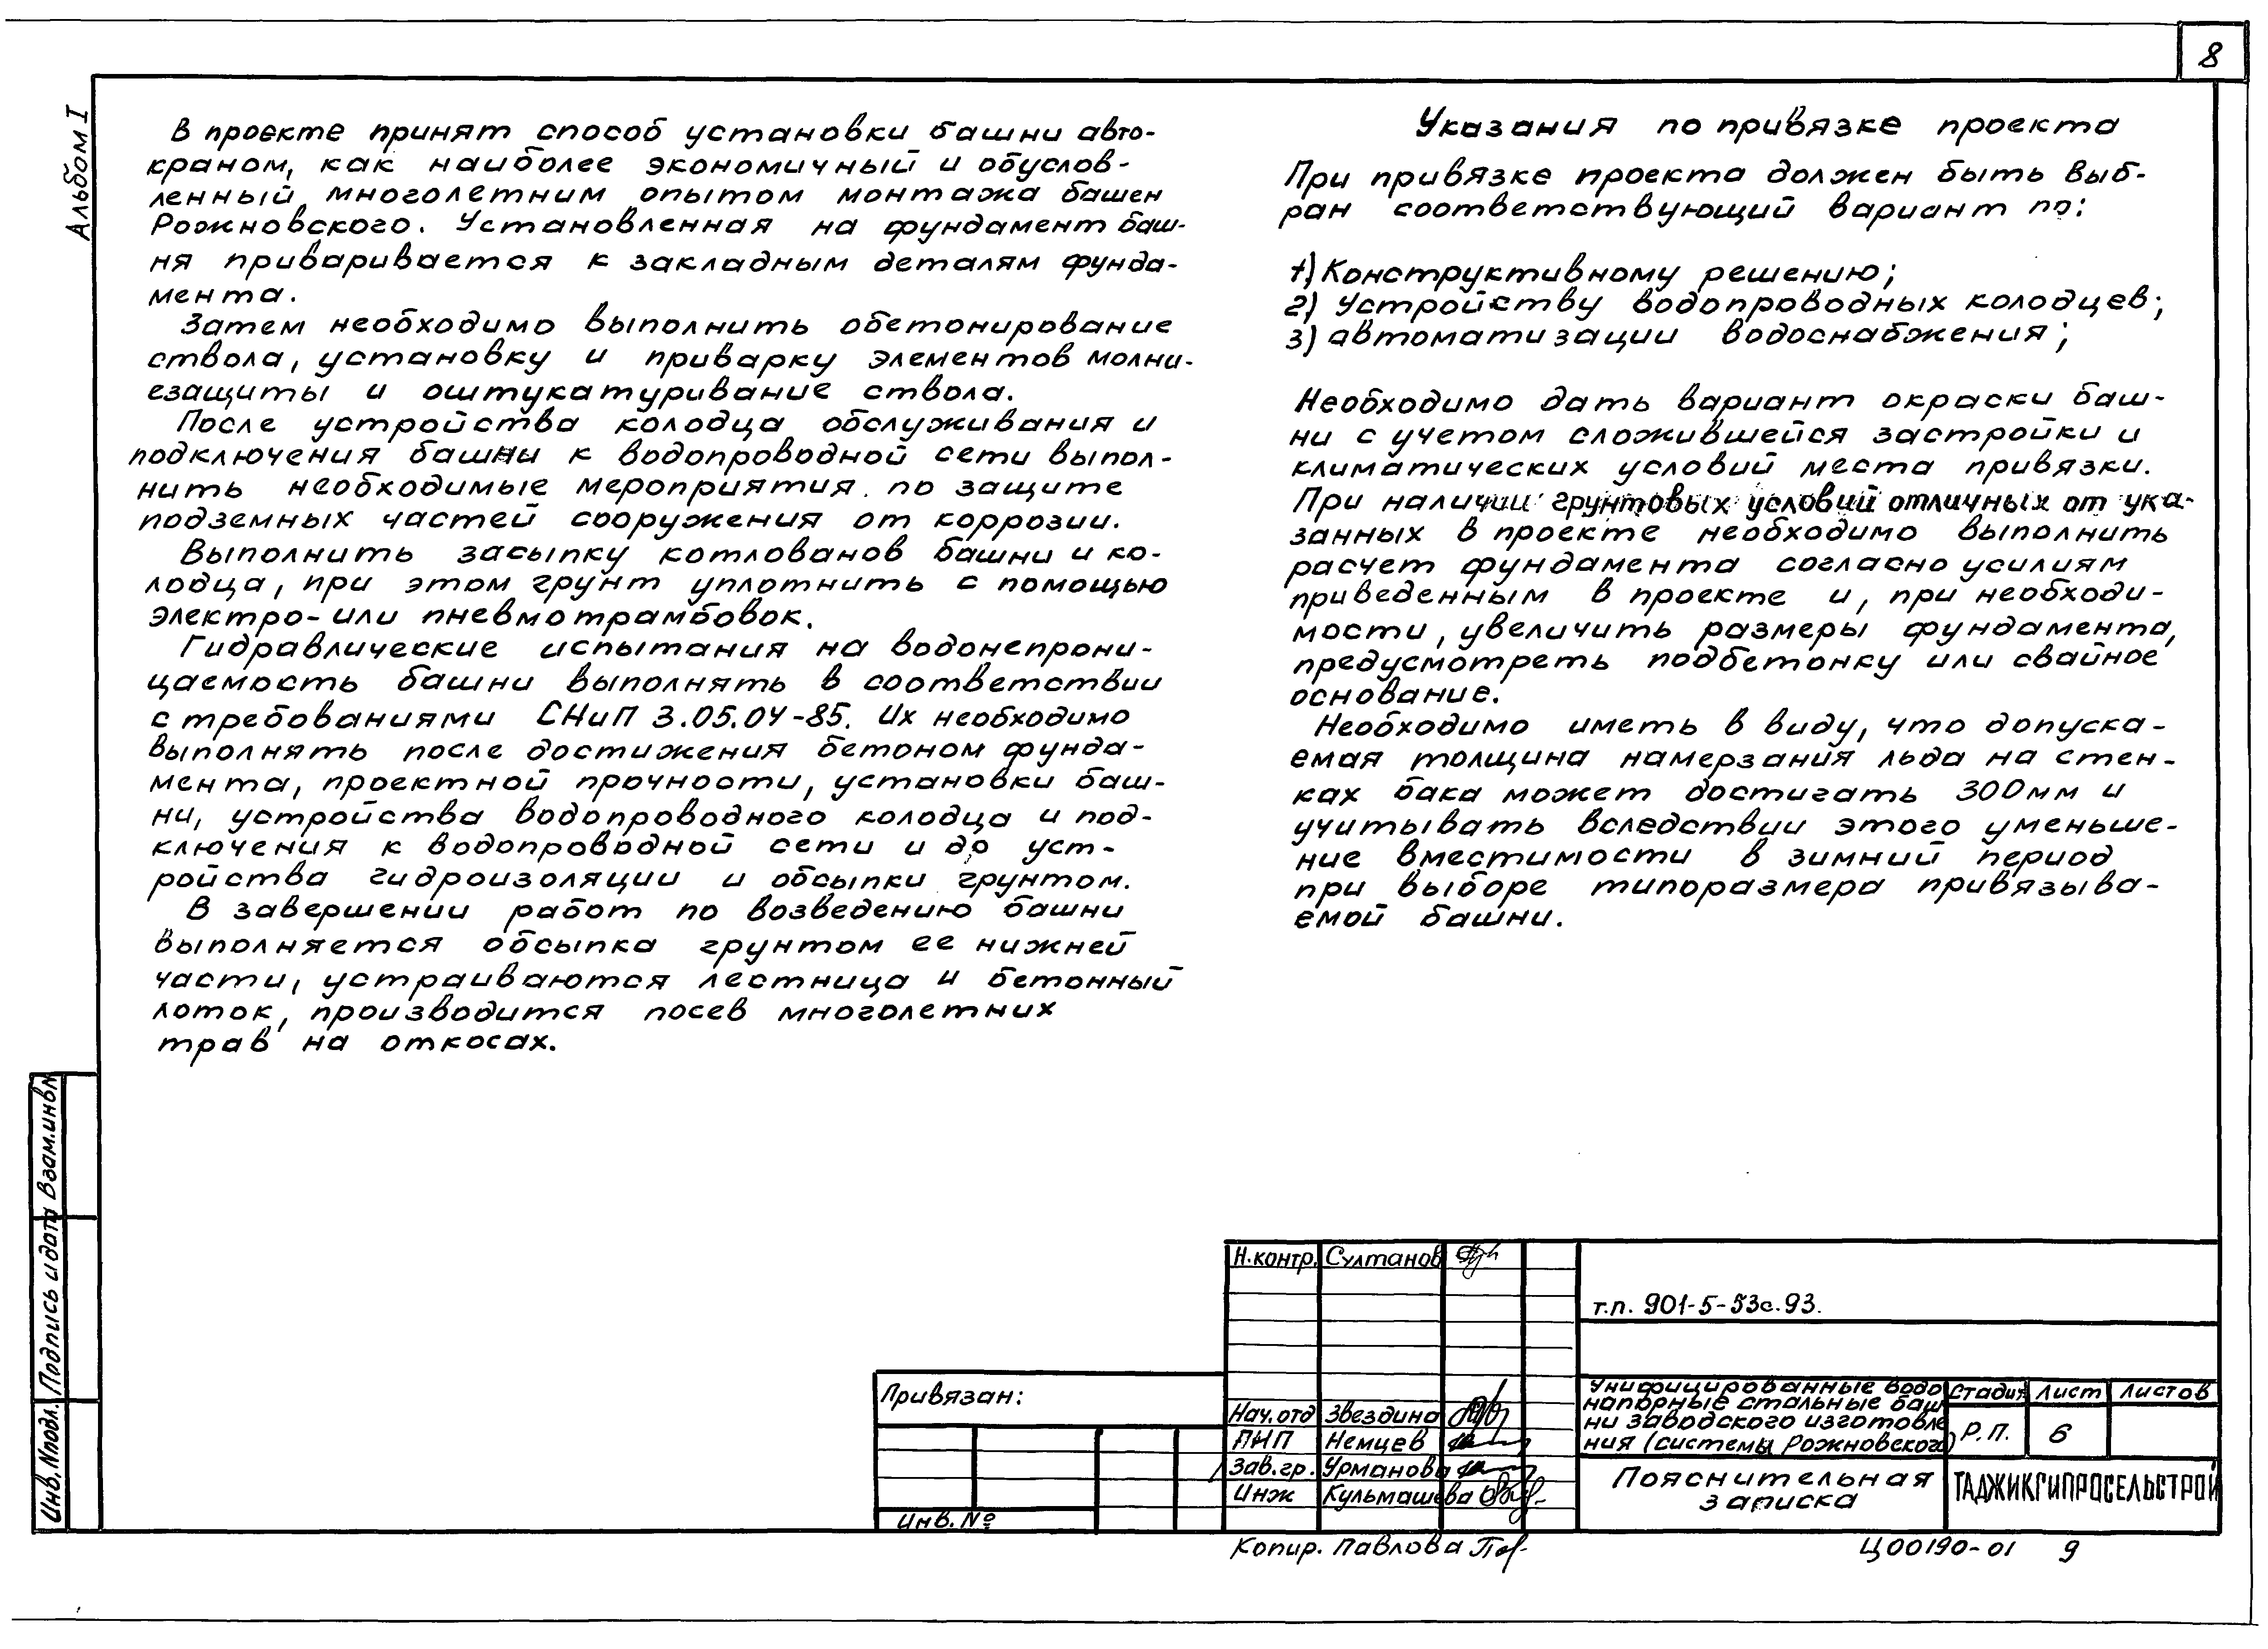 8
Альбом I
В проекте принят способ установки башни авто-
краном, как наиболее экономичный и обуслов-
ленный многолетним опытом монтажа башен
Рожновского. Установленная на фундамент баш-
ня приваривается к закладным деталям фунда-
мента.
Затем необходимо выполнить обетонирование
ствола, установку и приварку элементов молни-
езащиты и оштукатуривание ствола.
После устройства колодца обслуживания и
подключения башни к водопроводной сети выпол-
нить необходимые мероприятия по защите
подземных частей сооружения от коррозии.
Выполнить засыпку котлованов башни и ко-
лодца, при этом грунт уплотнить с помощью
электро- или пневмотрамбовок.
Гидравлические испытания на водонепрони-
цаемость башни выполнять в соответствии
с требованиями СНиП 3.05.04-85. Их необходимо
выполнять после достижения бетоном фунда-
мента, проектной прочности, установки баш-
ни, устройства водопроводного колодца и под-
ключения к водопроводной сети и до уст-
ройства гидроизоляции и обсыпки грунтом.
В завершении работ по возведению башни
выполняется обсыпка грунтом ее нижней
части, устраиваются лестница и бетонный
лоток, производится посев многолетних
трав на откосах.
Указания по привязке проекта
При привязке проекта должен быть выб-
ран соответствующий вариант по:
1) Конструктивному решению;
2) Устройству водопроводных колодцев;
3) автоматизации водоснабжения;
Необходимо дать вариант окраски баш-
ни с учетом сложившейся застройки и
климатических условий места привязки.
При наличии грунтовых условий отличных от ука-
занных в проекте необходимо выполнить
расчет фундамента согласно усилиям
приведенным в проекте и, при необходи-
мости, увеличить размеры фундамента,
предусмотреть подбетонку или свайное
основание.
Необходимо иметь в виду, что допуска-
емая толщина намерзания льда на стен-
ках бака может достигать 300мм и
учитывать вследствии этого уменьше-
ние вместимости в зимний период
при выборе типоразмера привязыва-
емой башни.
Взам.инв.N
Подпись и дата
Инв.Nподл.
Привязан:
Инв. №
Н.контр. Султанов
Нач.отд Звездина
ПНП Немцев
Зав.гр. Урманова
Инж Кульмашева
т.п. 901-5-53с.93.
Унифицированные водо
напорные стальные баш
ни заводского изготовле
ния (системы Рожновского)
Стадия Лист Листов
Р.П. 6
Пояснительная
записка
ТАДЖИКГИПРОСЕЛЬСТРОЙ
Копир. Павлова
Ц00190-01 9